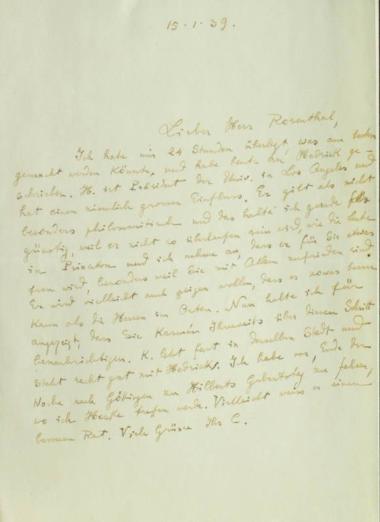 15.1.39.
Lieber Herr Rosenthal,
Ich habe mir 24 Stunden überlegt, was am besten
gemacht werden könnte, und habe heute an Hedrick ge-
schrieben. H. ist Präsident der Univ. in Los Angeles und
hat einen ziemlich grossen Einfluss. Er gilt als nicht
besonders philosemitisch und das halte ich gerade für
günstig, weil er nicht so überlaufen sein wird, wie die Leute
in Princeton und ich nehme an, dass er für Sie etwas
tun wird, besonders weil Sie mit Allem zufrieden sind.
Er wird vielleicht auch zeigen wollen, dass er etwas besser
kann als die Herren im Osten. Nun halte ich für
angezeigt, dass Sie Kármán Ihrerseits über diesen Schritt
benachrichtigen. K. lebt fast in derselben Stadt und
steht recht gut mit Hedrick. Ich habe vor, Ende der
Woche nach Göttingen zu Hilberts Geburtstag zu fahren,
wo ich Hecke treffen werde. Vielleicht weiss er einen
besseren Rat. Viele Grüsse Ihr C.